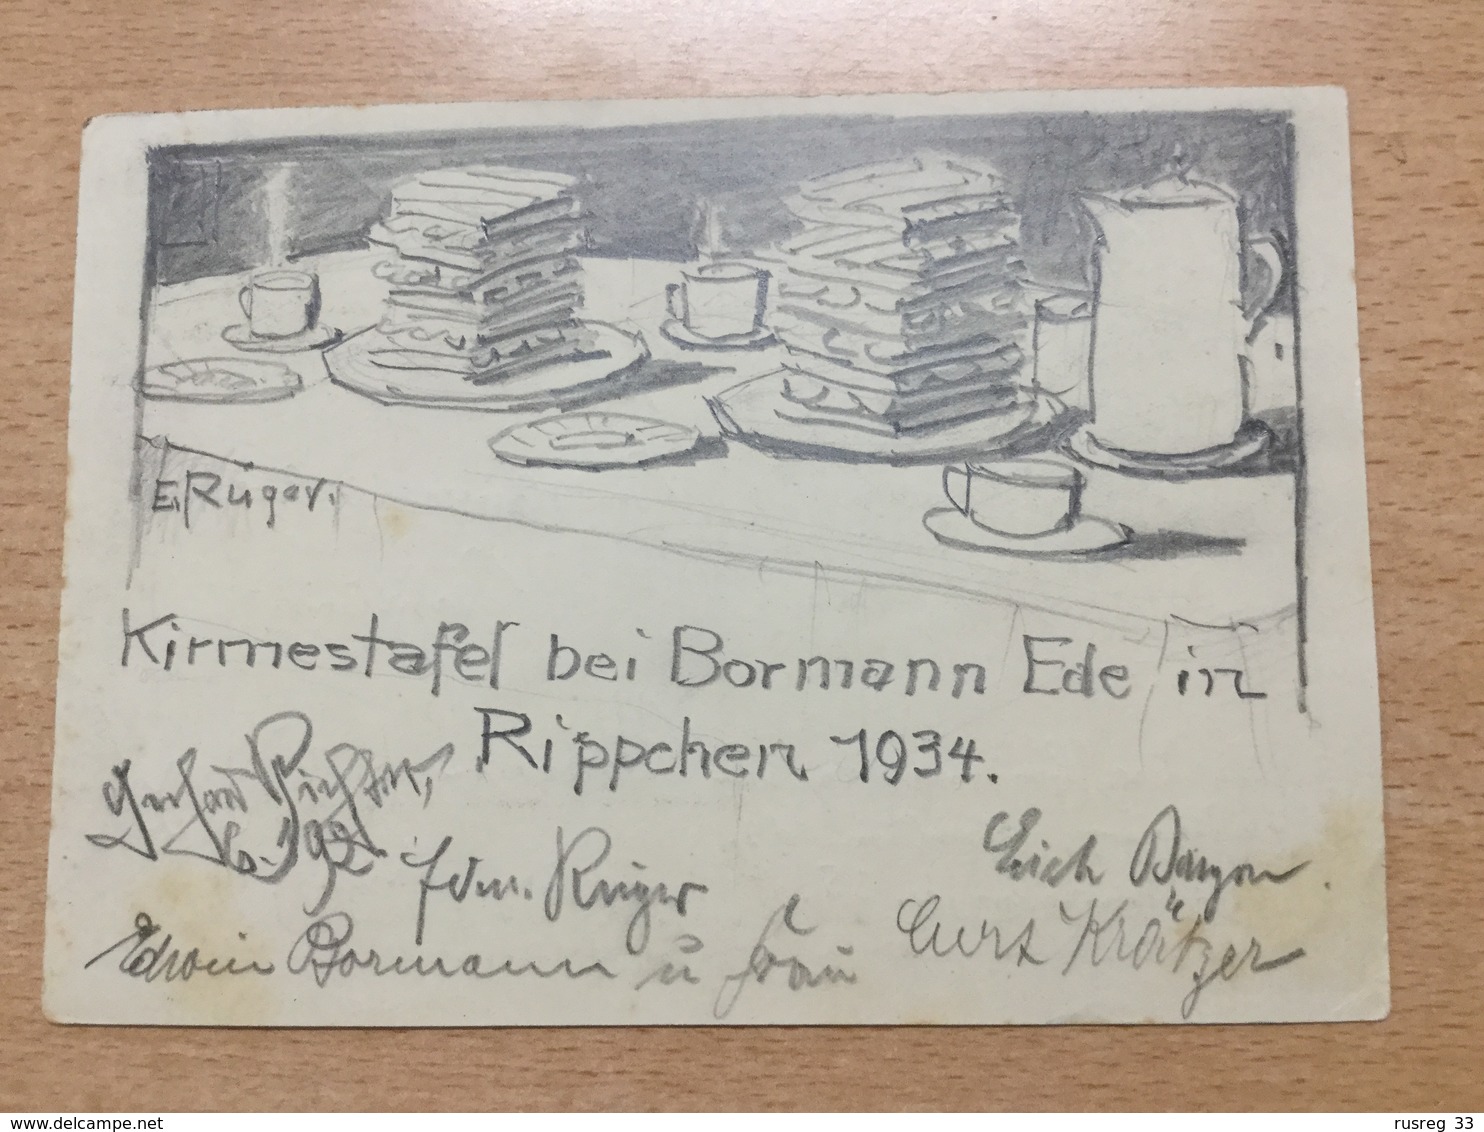 E. Rüger.
Kirmestafel bei Bormann Ede in
Rippchen 1934.
Gerhard Richter,
Edm. Rüger
Erich
Edwin Bormann u Frau
Curt Krätzer
www.delcampe.net
rusreg_33